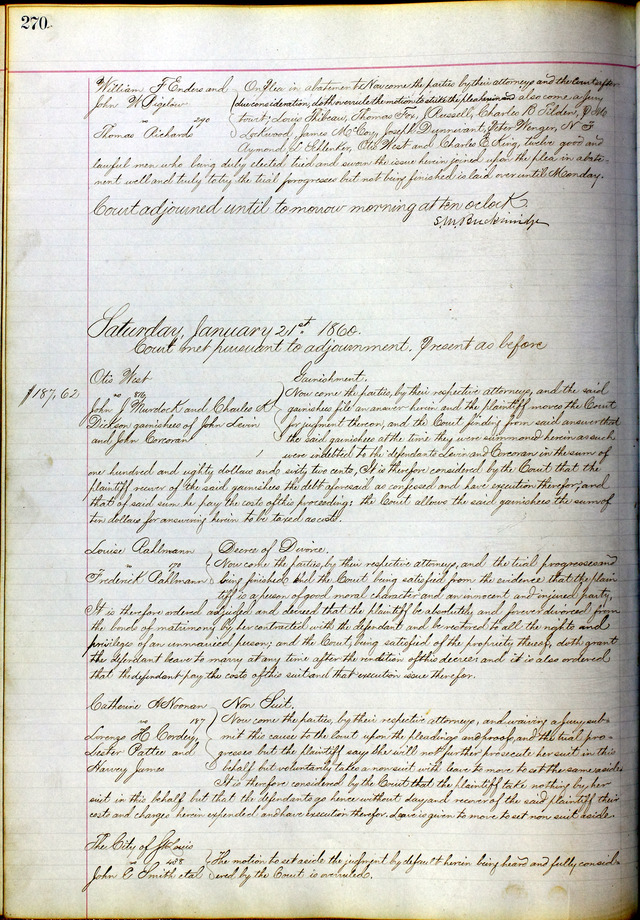 270.
William F Enders and
John W Bigelow
vs 290
Thomas Richards
On plea in abatement. Now come the parties by their attorneys and the Court after
due consideration, doth overrule the motion to strike the plea herein and also come a jury
to wit; Louis Thibeau, Thomas Fox, J Russell, Charles B Tilden,
Lockwood, James McCoy, Joseph Dunnivant, Peter Wenger, N F
Aymond, L Sellenker, Otis West and Charles E King, twelve good and
lawful men who being duly elected tried and sworn the issue herein joined upon the plea in abate-
ment well and truly to try the trial progresses but not being finished is laid over until Monday.
Court adjourned until tomorrow morning at ten oclock
S.M. Breckinridge
Saturday, January 21st 1860.
Court met pursuant to adjournment. Present as before
$187,62
Otis West
vs
John J Murdock and Charles K
Dickson garnishees of John Levin
and John Corcoran
Garnishment.
Now come the parties, by their respective attorneys, and the said
garnishees file an answer herein and the plaintiff moves the Court
for judgment thereon, and the Court finding from said answer that
the said garnishees at the time they were summoned herein as such
were indebted to the defendants Levin and Corcoran in the sum of
one hundred and eighty dollars and sixty two cents, It is therefore considered by the Court that the
plaintiff recover of the said garnishees the debt aforesaid as confessed and have execution therefor; and
that of said sum he pay the costs of this proceeding; the Court allows the said garnishees the sum of
ten dollars for answering herein to be taxed as costs.
Louise Pahlmann
vs 170
Frederick Pallmann
Decree of Divorce.
Now come the parties, by their respective attorneys, and the trial progresses and
being finished and the Court being satisfied from the evidence that the plain
tiff is a person of good moral character and an innocent and injured party,
It is therefore ordered adjudged and decreed that the plaintiff be absolutely and forever divorced from
the bonds of matrimony by her contracted with the defendant and be restored to all the rights and
privileges of an unmarried person; and the Court, being satisfied of the propriety thereof, doth grant
the defendant leave to marry at any time after the rendition of this decree and it is also ordered
that the defendant pay the costs of this suit and that execution issue therefor.
Catherine A Noonan
vs 187
Lorenzo H Cordey,
Lester Pattee and
Harvey James
Non Suit.
Now come the parties, by their respective attorneys, and waiving a jury sub-
mit this cause to the Court upon the pleadings and proof, and the trial pro-
gresses but the plaintiff says she will not further prosecute her suit in this
behalf but voluntarily takes a non suit with leave to move to set the same aside.
It is therefore considered by the Court that the plaintiff take nothing by her
suit in this behalf but that the defendants go hence without day and recover of the said plaintiff their
costs and charges herein expended and have execution therefor. Leave is given to move to set non suit aside.
The City of St Louis
vs 488
John C Smith et al
The motion to set aside the judgment by default herein being heard and fully consid-
ered by the Court is overruled.